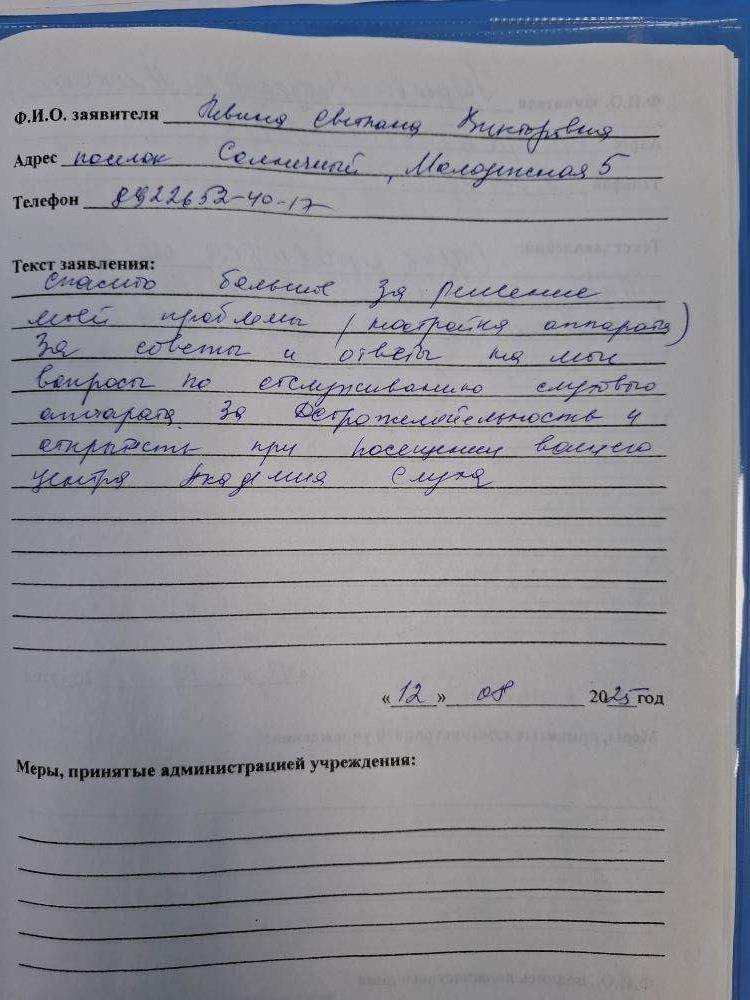 Ф.И.О. заявителя Певина Светлана Викторовна
Адрес поселок Солнечный, Молодежная 5
Телефон 8922652-40-17
Текст заявления:
Спасибо большое за решение
моей проблемы (настройка аппарата)
За советы и ответы на мои
вопросы по отслуживанию слухового
аппарата. За Доброжелательность и
открытость при посещении вашего
центра Академия Слуха
«12» 08 2025 год
Меры, принятые администрацией учреждения: